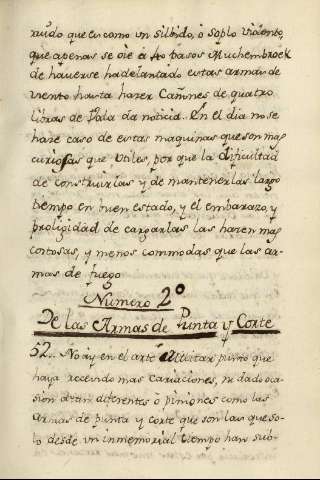 ruido que es como un silbido, ò soplo violento,
que apenas se oìe à 40 pasos Muchembroek
de haverse hadelantado estas armas de
viento hasta hazer Cañones de quatro
libras de bala da noticia. En el dia no se
hace caso de estas maquinas que son mas
curiosas que utiles, por que la dificultad
de construirlas y de mantenerlas largo
tiempo en buen estado, y el embarazo, y
proligidad de cargarlas las hazen mas
costosas, y menos commodas que las ar-
mas de fuego
Numero 2º
De las Armas de Punta y Corte
52.. No ay en el arte Militar punto que
haya recevido mas variaciones, ni dado oca-
sion à tan diferentes òpiniones como las
armas de punta y corte que son las que so-
lo desde un inmemorial tiempo han sub-